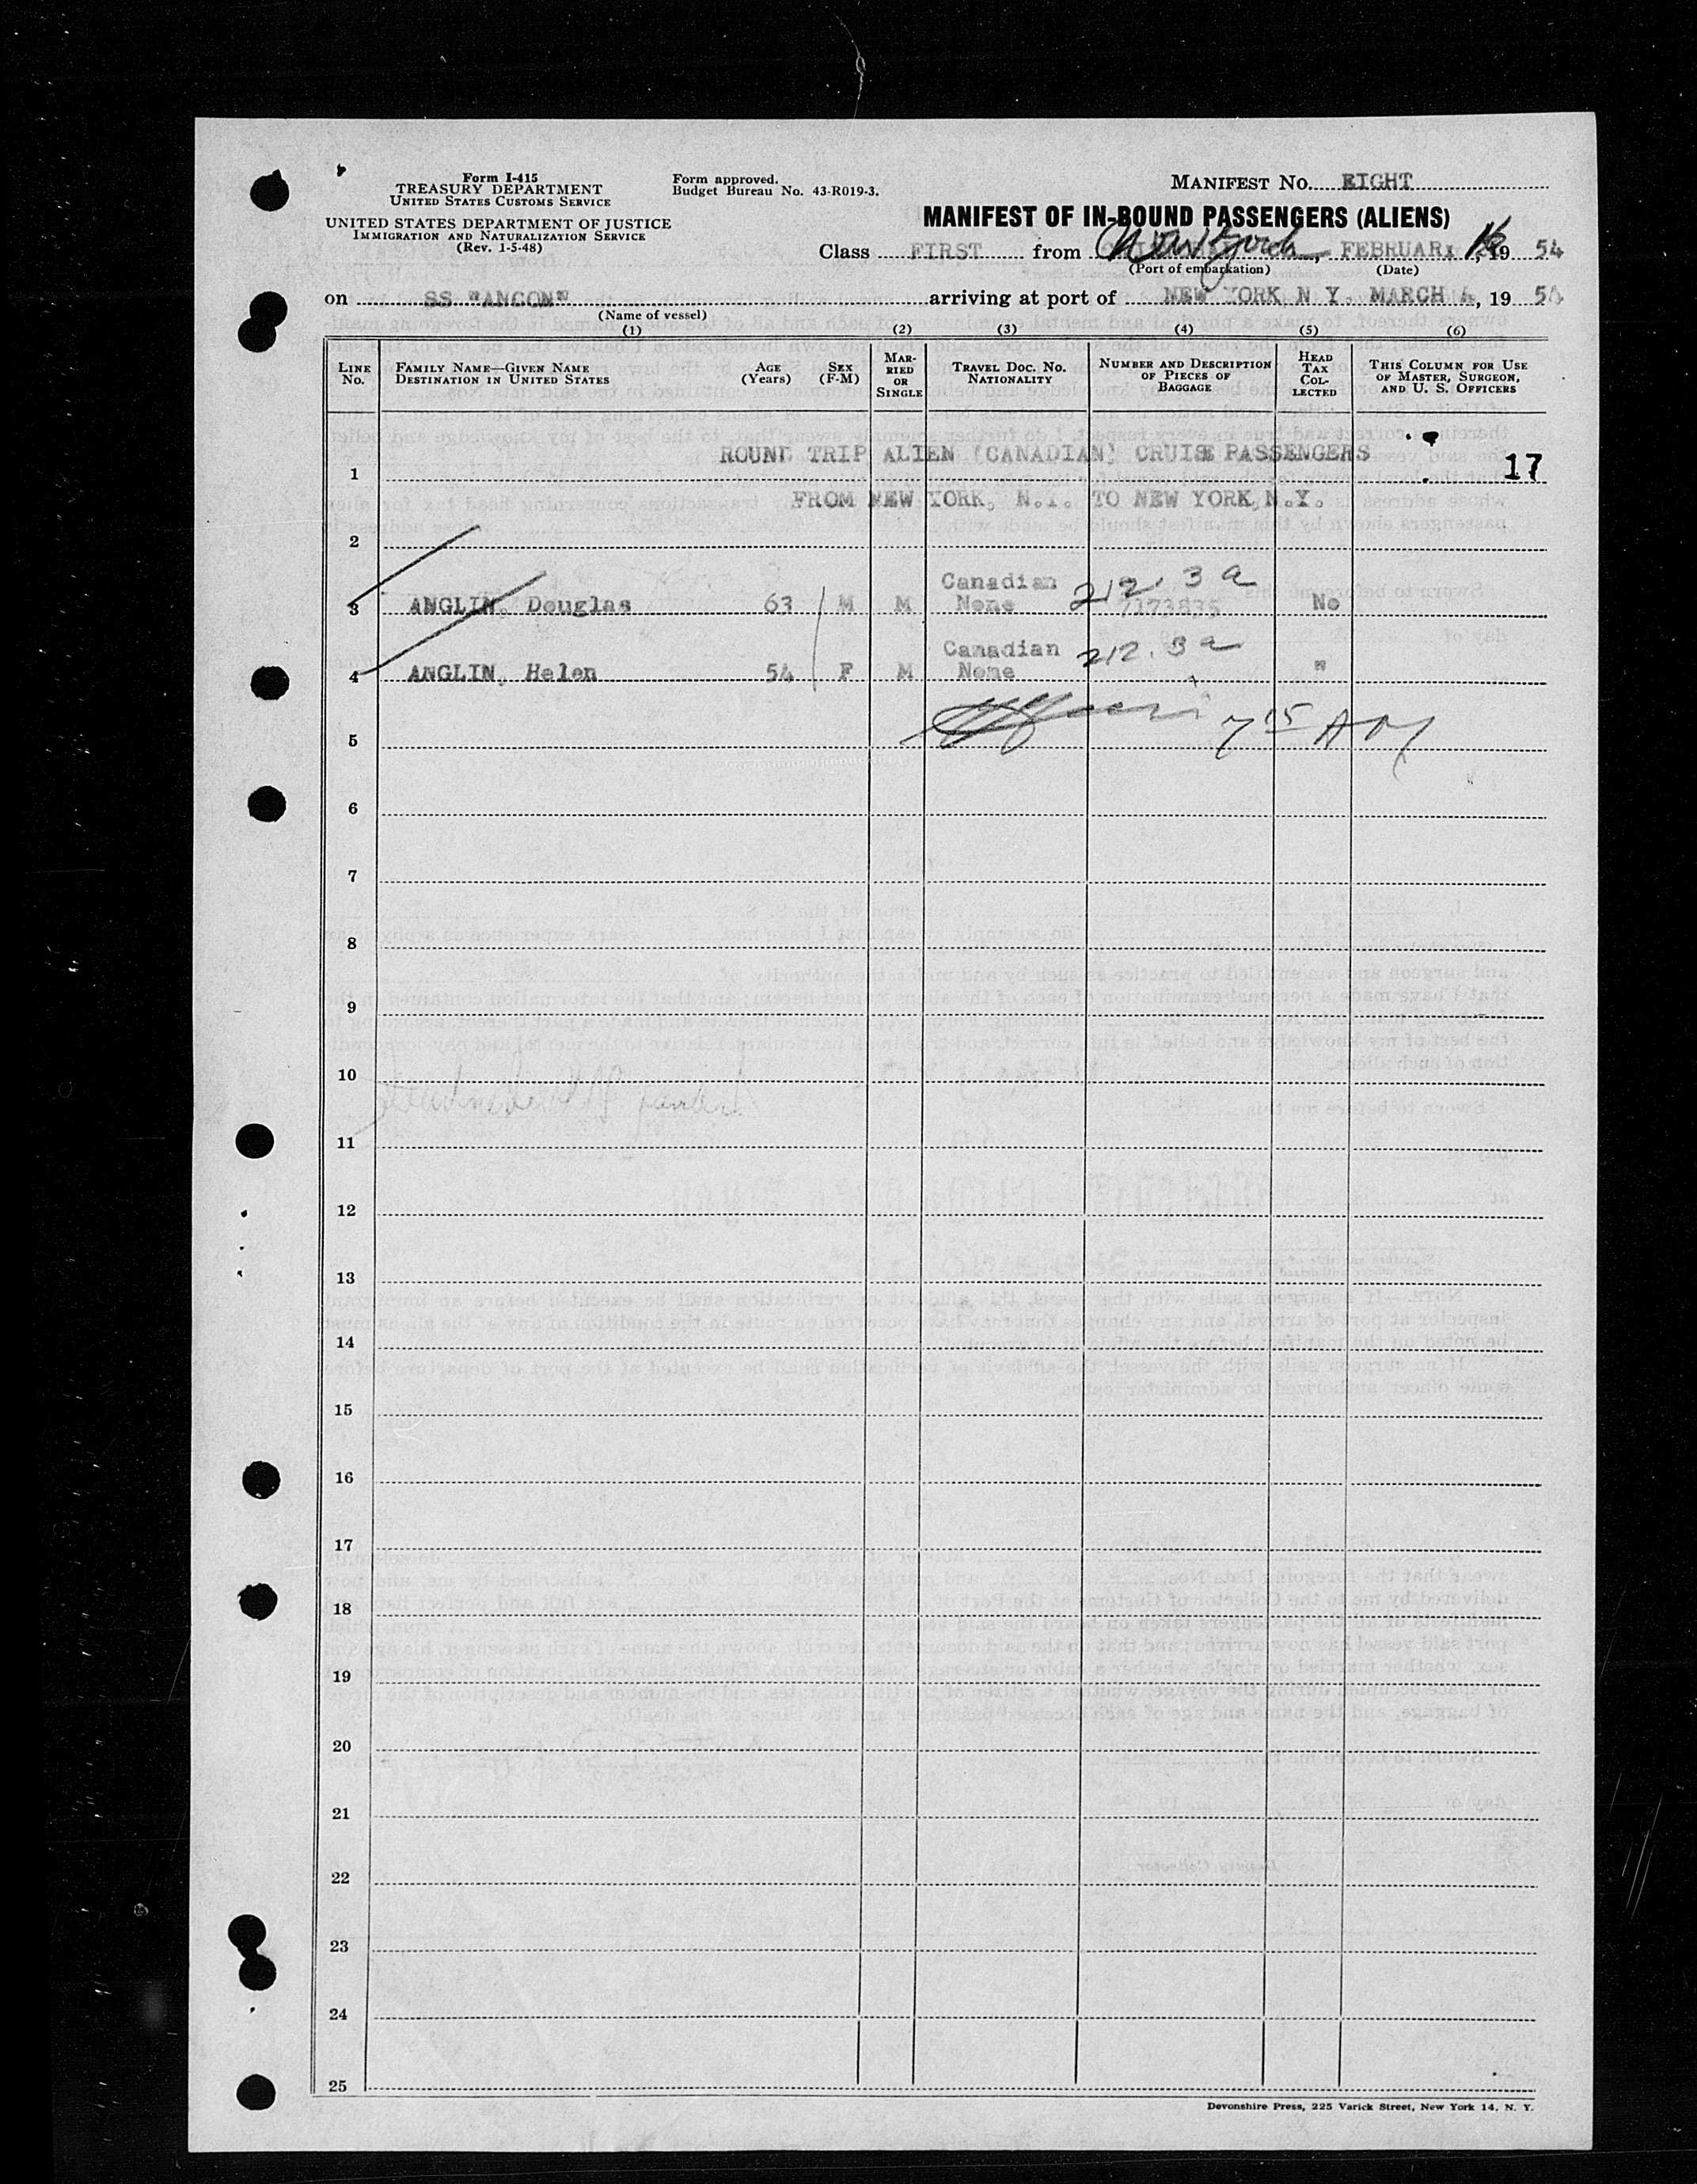 Form I-415
TREASURY DEPARTMENT
UNITED STATES CUSTOMS SERVICE
UNITED STATES DEPARTMENT OF JUSTICE
IMMIGRATION AND NATURALIZATION SERVICE
(Rev. 1-5-48)
Form approved.
Budget Bureau No. 43-R019-3.
MANIFEST NO. EIGHT
MANIFEST OF IN-BOUND PASSENGERS (ALIENS)
Class FIRST from New York, FEBRUARY 16, 19 54
(Port of embarkation) (Date)
on SS "ANCON" arriving at port of NEW YORK N Y. MARCH 4, 19 54
(Name of vessel)
(1) (2) (3) (4) (5) (6)
LINE NO. FAMILY NAME—GIVEN NAME DESTINATION IN UNITED STATES AGE (YEARS) SEX (F-M) MARRIED OR SINGLE TRAVEL DOC. NO. NATIONALITY NUMBER AND DESCRIPTION OF PIECES OF BAGGAGE HEAD TAX COLLECTED THIS COLUMN FOR USE OF MASTER, SURGEON, AND U. S. OFFICERS
ROUND TRIP ALIEN (CANADIAN) CRUISE PASSENGERS
1 17
FROM NEW YORK, N.Y. TO NEW YORK, N.Y.
2
Canadian 212.3a
3 ANGLIN, Douglas 63 M M None 7173835 No
Canadian 212.3a
4 ANGLIN, Helen 54 F M None "
5 7 15 AM
6
7
8
9
10
11
12
13
14
15
16
17
18
19
20
21
22
23
24
25
Devonshire Press, 225 Varick Street, New York 14, N. Y.